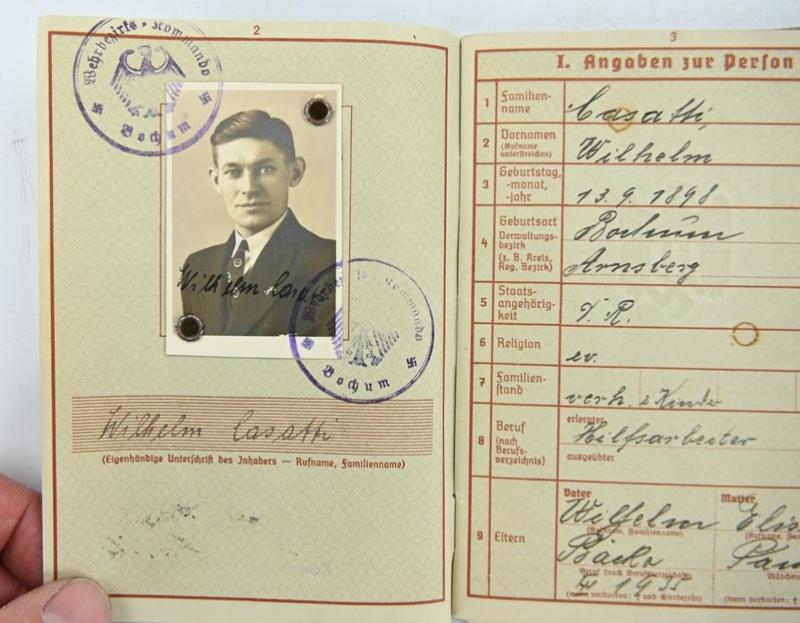 2
Wehrbezirks-Kommando
Bochum
Wilhelm Casatti
Kommando
Bochum
Wilhelm Casatti
(Eigenhändige Unterschrift des Inhabers — Rufname, Familienname)
3
I. Angaben zur Person
1 Familien-
name
Casatti,
2 Vornamen
(Rufname
unterstreichen)
Wilhelm
3 Geburtstag,
-monat,
-jahr
13.9.1898
4 Geburtsort
Verwaltungs-
bezirk
(z. B. Kreis,
Reg. Bezirk)
Bochum
Arnsberg
5 Staats-
angehörig-
keit
D.R.
6 Religion
ev.
7 Familien-
stand
verh. 2 Kinder
8 Beruf
(nach
Berufs-
verzeichnis)
erlernter
Hilfsarbeiter
ausgeübter
9 Eltern
Vater
Wilhelm
(Rufname, Familienname)
Beruf (nach Berufsverzeichnis)
1935
(wenn verstorben: † und Sterbejahr)
Mutter
Elis
(Rufname, Fa
Mädchen
(wenn verstorben: †